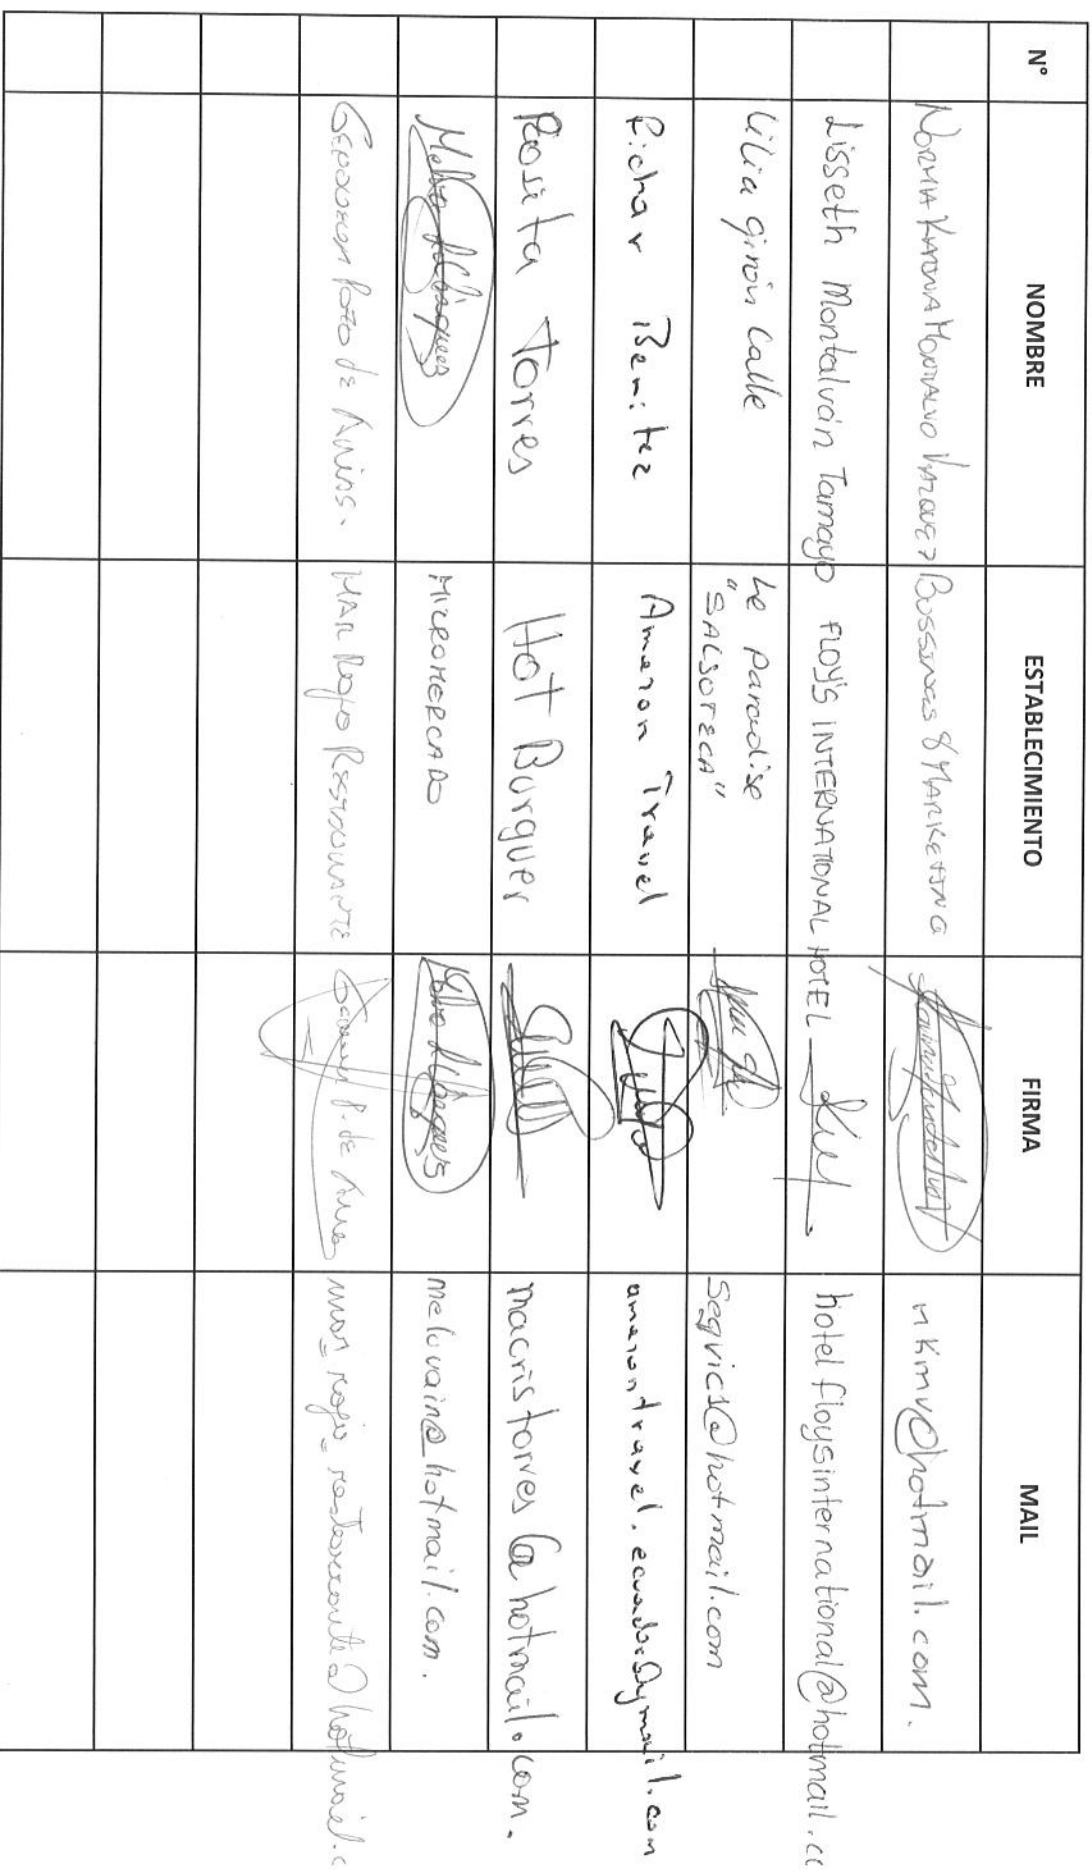 N° NOMBRE ESTABLECIMIENTO FIRMA MAIL
NORMA KARINA MONTALVO BUSSINES & MARKETING nkmv@hotmail.com.
Lisseth Montalván Tamayo FLOY'S INTERNATIONAL HOTEL hotelfloysinternational@hotmail.co
Lilia Girón Calle Le Paradise
"SALSOTECA" segvics@hotmail.com
Richar Benitez Amazon Travel amazontravel.ecuador@ymail.com
Rosita Torres Hot Burguer macristorres@hotmail.com.
MICROMERCADO melovain@hotmail.com.
Pozo de Arias. MAR Rojo Restaurante mar_rojo_restaurante@hotmail.c